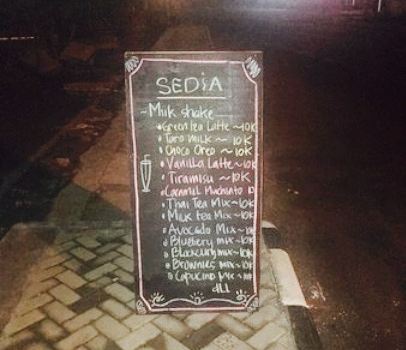 SEDiA
~Milk shake
• Green tea Latte ~10K
• Taro milk ~ 10K
• Choco Oreo ~ 10K
• Vanilla Latte ~10K
• Tiramisu ~ 10K
• Caramel Machiato 10
• Thai Tea Mix ~10K
• Milk tea Mix ~10K
• Avocado Mix ~10K
• Blueberry mix ~10K
• Blackcurry mix ~10K
• Brownies mix ~10K
• Capucino Mix ~10K
dll